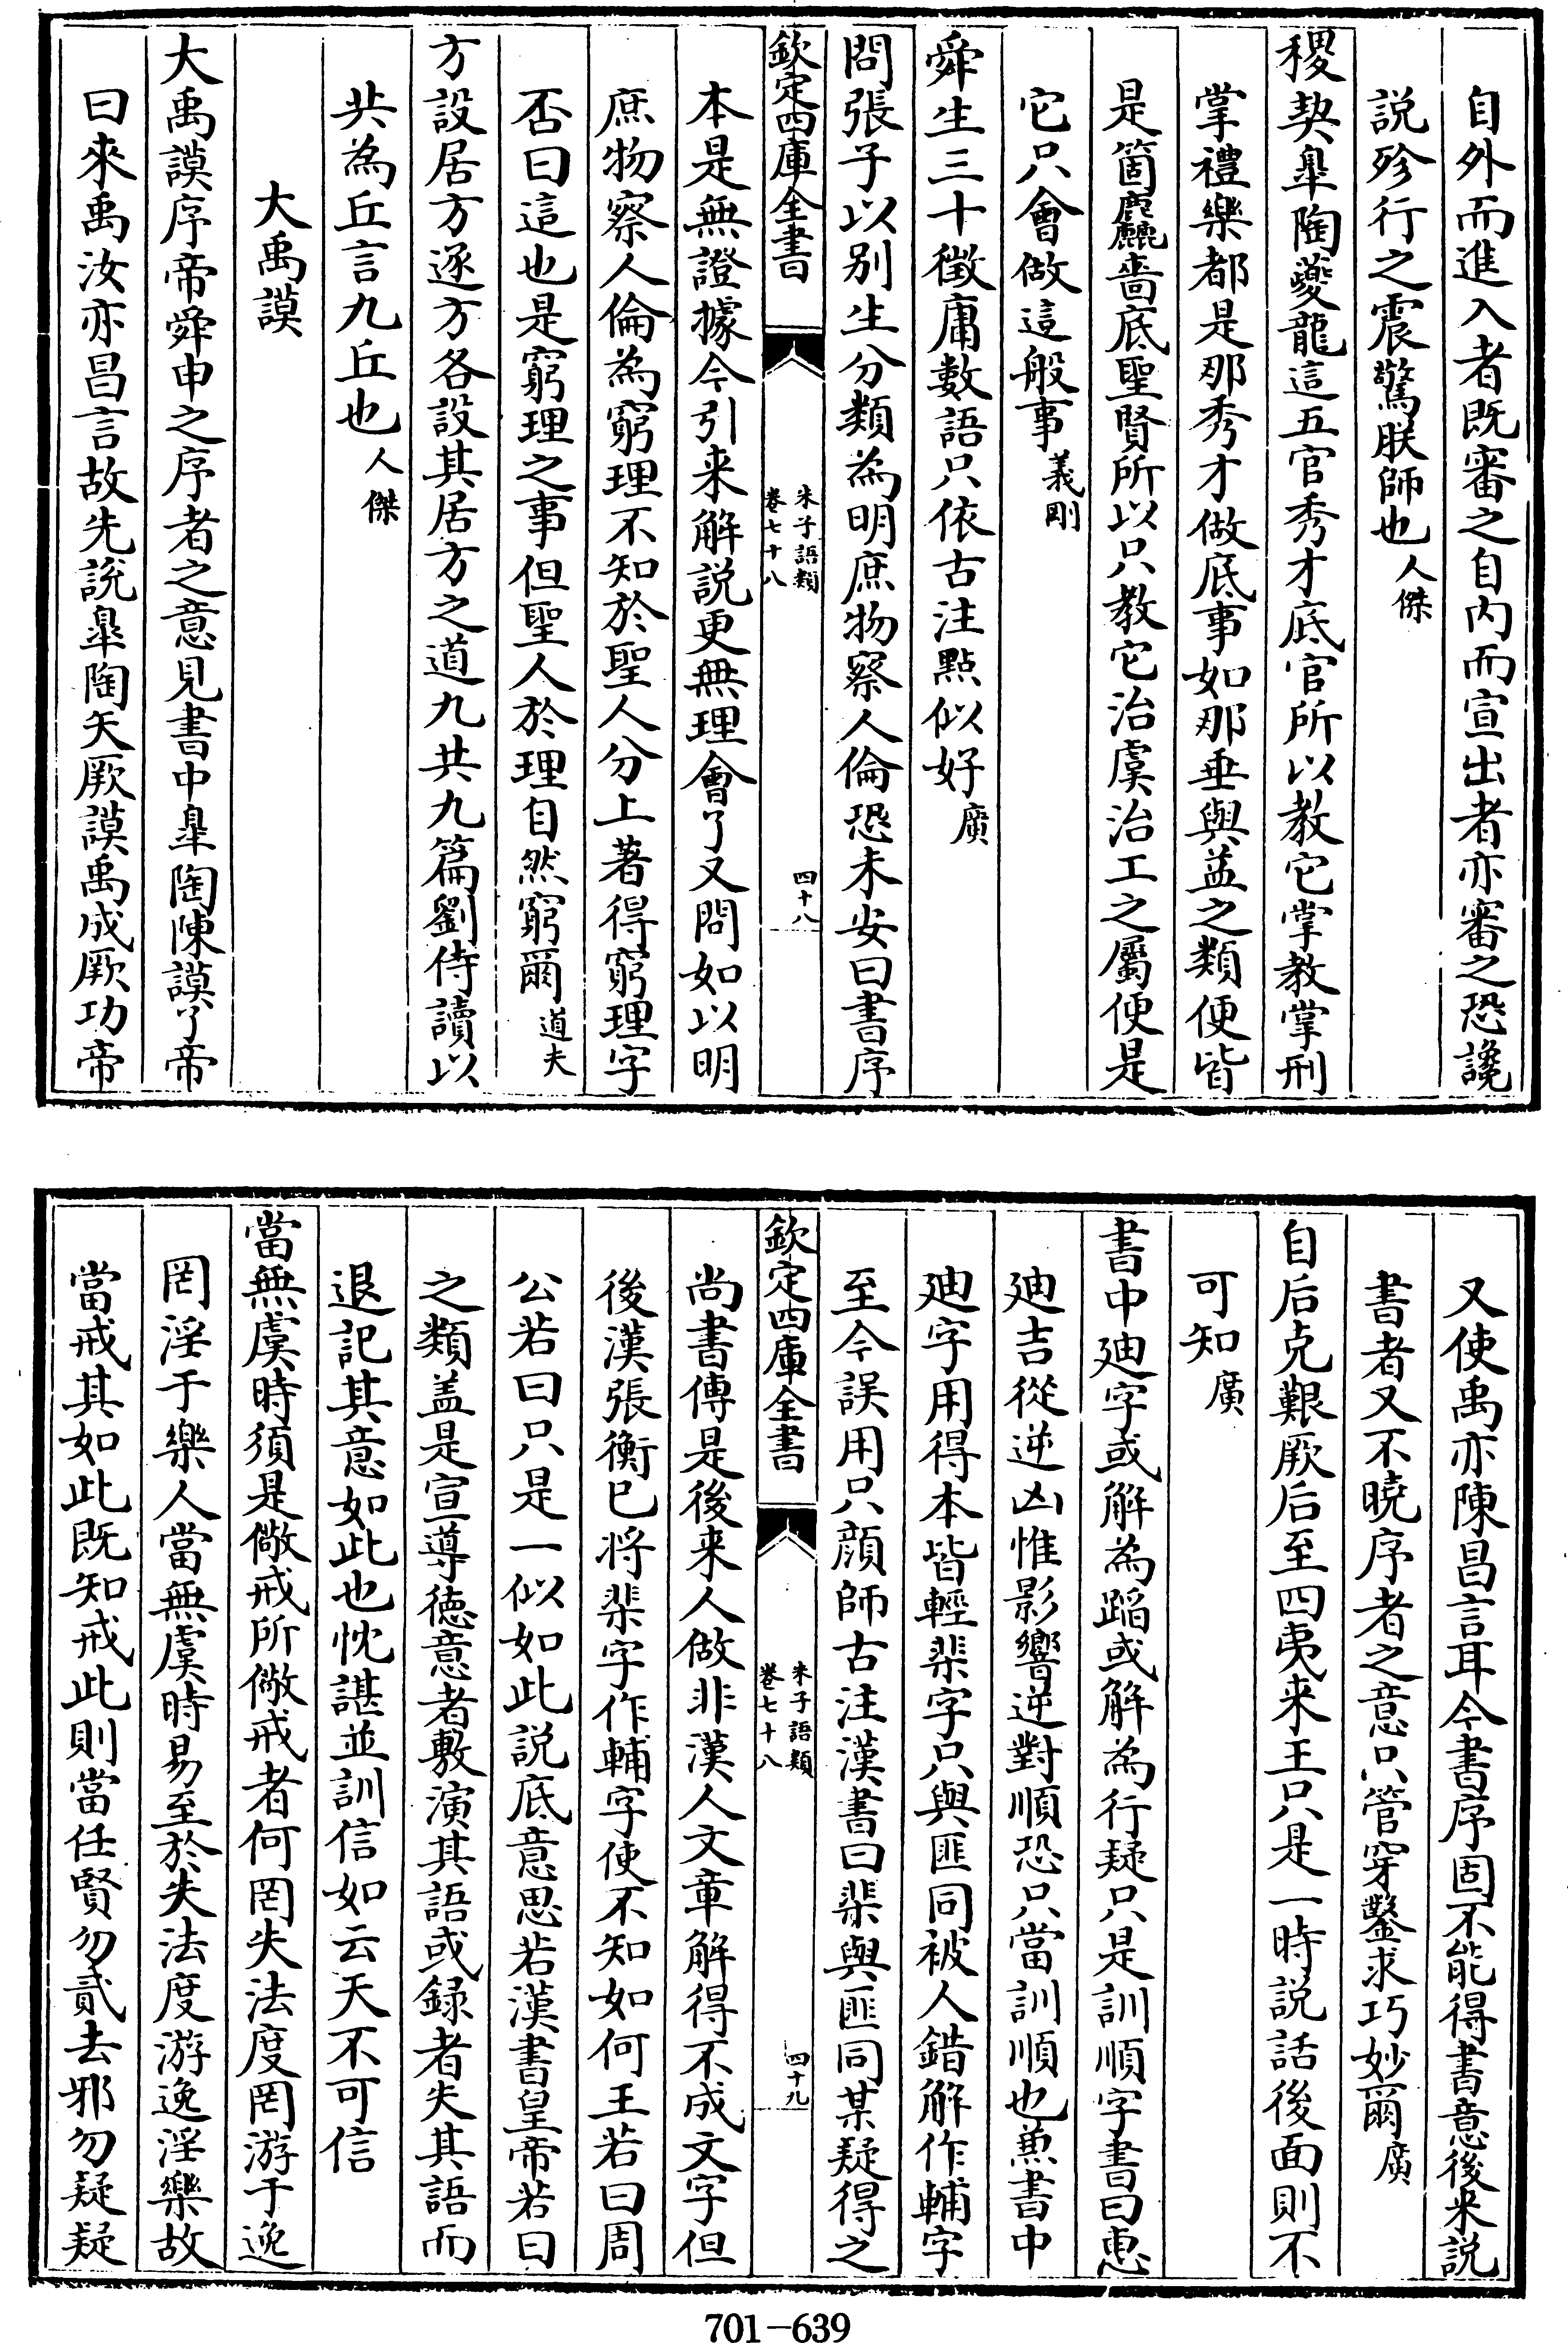 自外而進入者既審之自内而宣出者亦審之恐讒
説殄行之震驚朕師也人傑
稷契臯陶夔龍這五官秀才底官所以教它掌教掌刑
掌禮樂都是那秀才做底事如那垂與益之類便皆
是箇麤啬底聖賢所以只教它治虞治工之屬便是
它只會做這般事義剛
舜生三十徴庸數語只依古注點似好廣
問張子以别生分類為明庶物察人倫恐未安曰書序
欽定四庫全書
朱子語類
卷七十八
四十八
本是無證據今引来解説更無理會了又問如以明
庶物察人倫為窮理不知於聖人分上著得窮理字
否曰這也是窮理之事但聖人於理自然窮爾道夫
方設居方逐方各設其居方之道九共九篇劉侍讀以
共為丘言九丘也人傑
大禹謨
大禹謨序帝舜申之序者之意見書中臯陶陳謨了帝
曰來禹汝亦昌言故先説臯陶矢厥謨禹成厥功帝
又使禹亦陳昌言耳今書序固不能得書意後来説
書者又不曉序者之意只管穿鑿求巧妙爾廣
自后克艱厥后至四夷来王只是一時説話後面則不
可知廣
書中廸字或解為蹈或解為行疑只是訓順字書曰惠
廸吉從逆凶惟影響逆對順恐只當訓順也兼書中
廸字用得本皆輕棐字只與匪同被人錯解作輔字
至今誤用只顔師古注漢書曰棐與匪同某疑得之
欽定四庫全書
朱子語類
卷七十八
四十九
尚書傳是後来人做非漢人文章解得不成文字但
後漢張衡已将棐字作輔字使不知如何王若曰周
公若曰只是一似如此説底意思若漢書皇帝若曰
之類盖是宣導德意者敷演其語或録者失其語而
退記其意如此也忱諶並訓信如云天不可信
當無虞時須是儆戒所儆戒者何罔失法度罔游于逸
罔淫于樂人當無虞時易至於失法度游逸淫樂故
當戒其如此既知戒此則當任賢勿貳去邪勿疑疑
701-639